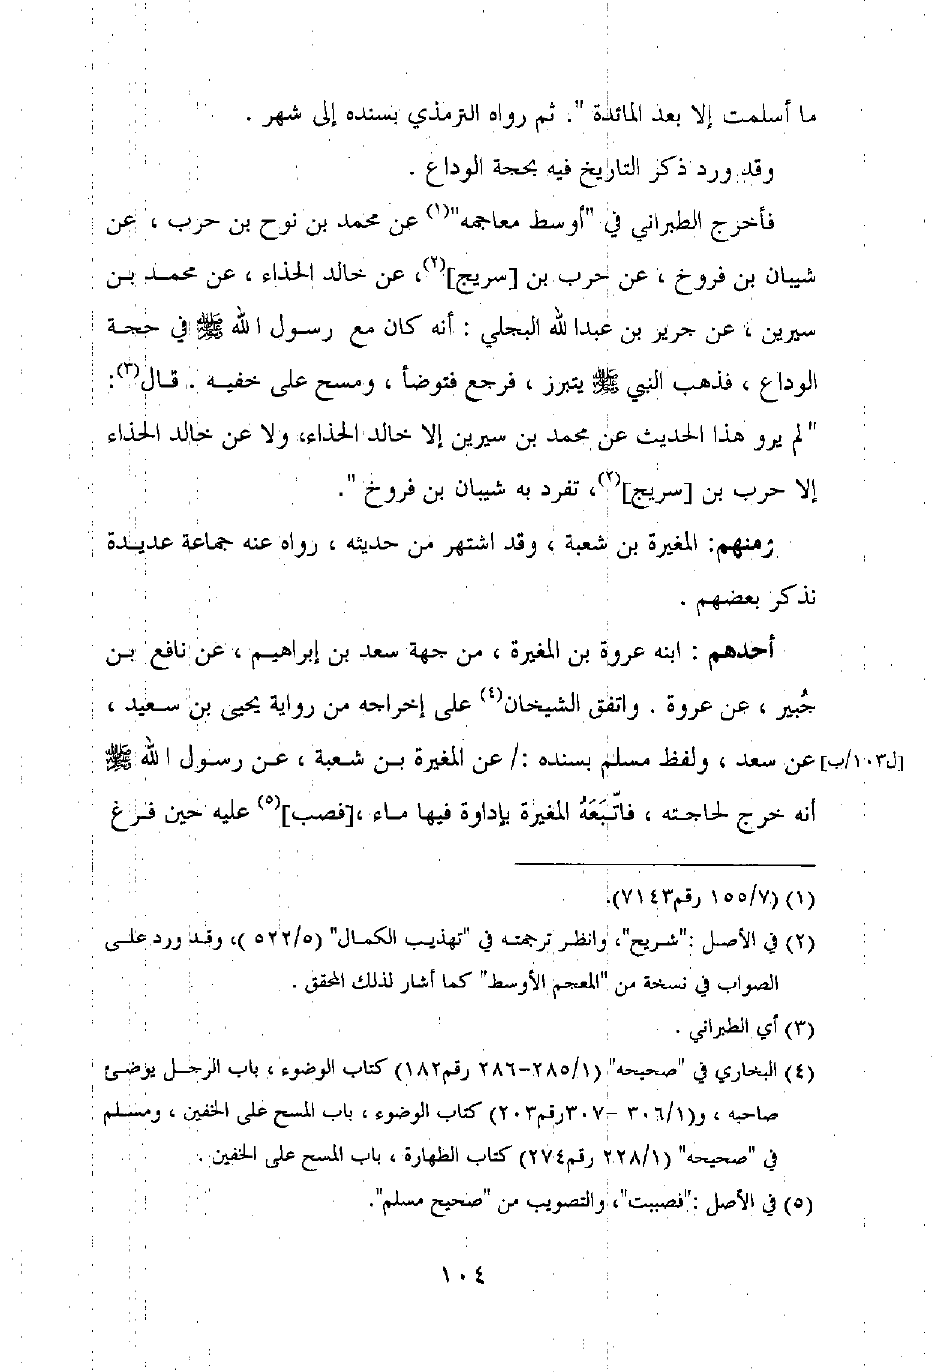 ما أسلمت إلا بعد المائدة ". ثم رواه الترمذي بسنده إلى شهر .
وقد ورد ذكر التاريخ فيه بحجة الوداع .
فأخرج الطبراني في "أوسط معاجمه"(١) عن محمد بن نوح بن حرب ، عن
شيبان بن فروخ ، عن حرب بن [سريج](٢)، عن خالد الحذاء ، عن محمد بن
سيرين ، عن جرير بن عبدالله البجلي : أنه كان مع رسول الله ﷺ في حجة
الوداع ، فذهب النبي ﷺ يتبرز ، فرجع فتوضأ ، ومسح على خفيه . قال(٣):
"لم يرو هذا الحديث عن محمد بن سيرين إلا خالد الحذاء، ولا عن خالد الحذاء
إلا حرب بن [سريج](٢)، تفرد به شيبان بن فروخ ".
ومنهم: المغيرة بن شعبة ، وقد اشتهر من حديثه ، رواه عنه جماعة عديدة
نذكر بعضهم .
أحدهم : ابنه عروة بن المغيرة ، من جهة سعد بن إبراهيم ، عن نافع بن
جُبير ، عن عروة . واتفق الشيخان(٤) على إخراجه من رواية يحيى بن سعيد ،
[ل١٠٣/ب] عن سعد ، ولفظ مسلم بسنده :/ عن المغيرة بن شعبة ، عن رسول الله ﷺ
أنه خرج لحاجته ، فاتَّبَعَهُ المغيرة بإداوة فيها ماء ،[فصب](٥) عليه حين فرغ
(١) (١٥٥/٧ رقم٧١٤٣).
(٢) في الأصل :"شريح"، وانظر ترجمته في "تهذيب الكمال" (٥٢٢/٥)، وقد ورد على
الصواب في نسخة من "المعجم الأوسط" كما أشار لذلك المحقق .
(٣) أي الطبراني .
(٤) البخاري في "صحيحه" (٢٨٥/١-٢٨٦ رقم١٨٢) كتاب الوضوء ، باب الرجل يوضئ
صاحبه ، و(٣٠٦/١ -٣٠٧رقم٢٠٣) كتاب الوضوء ، باب المسح على الخفين ، ومسلم
في "صحيحه" (٢٢٨/١ رقم٢٧٤) كتاب الطهارة ، باب المسح على الخفين .
(٥) في الأصل :"فصببت"، والتصويب من "صحيح مسلم".
١٠٤